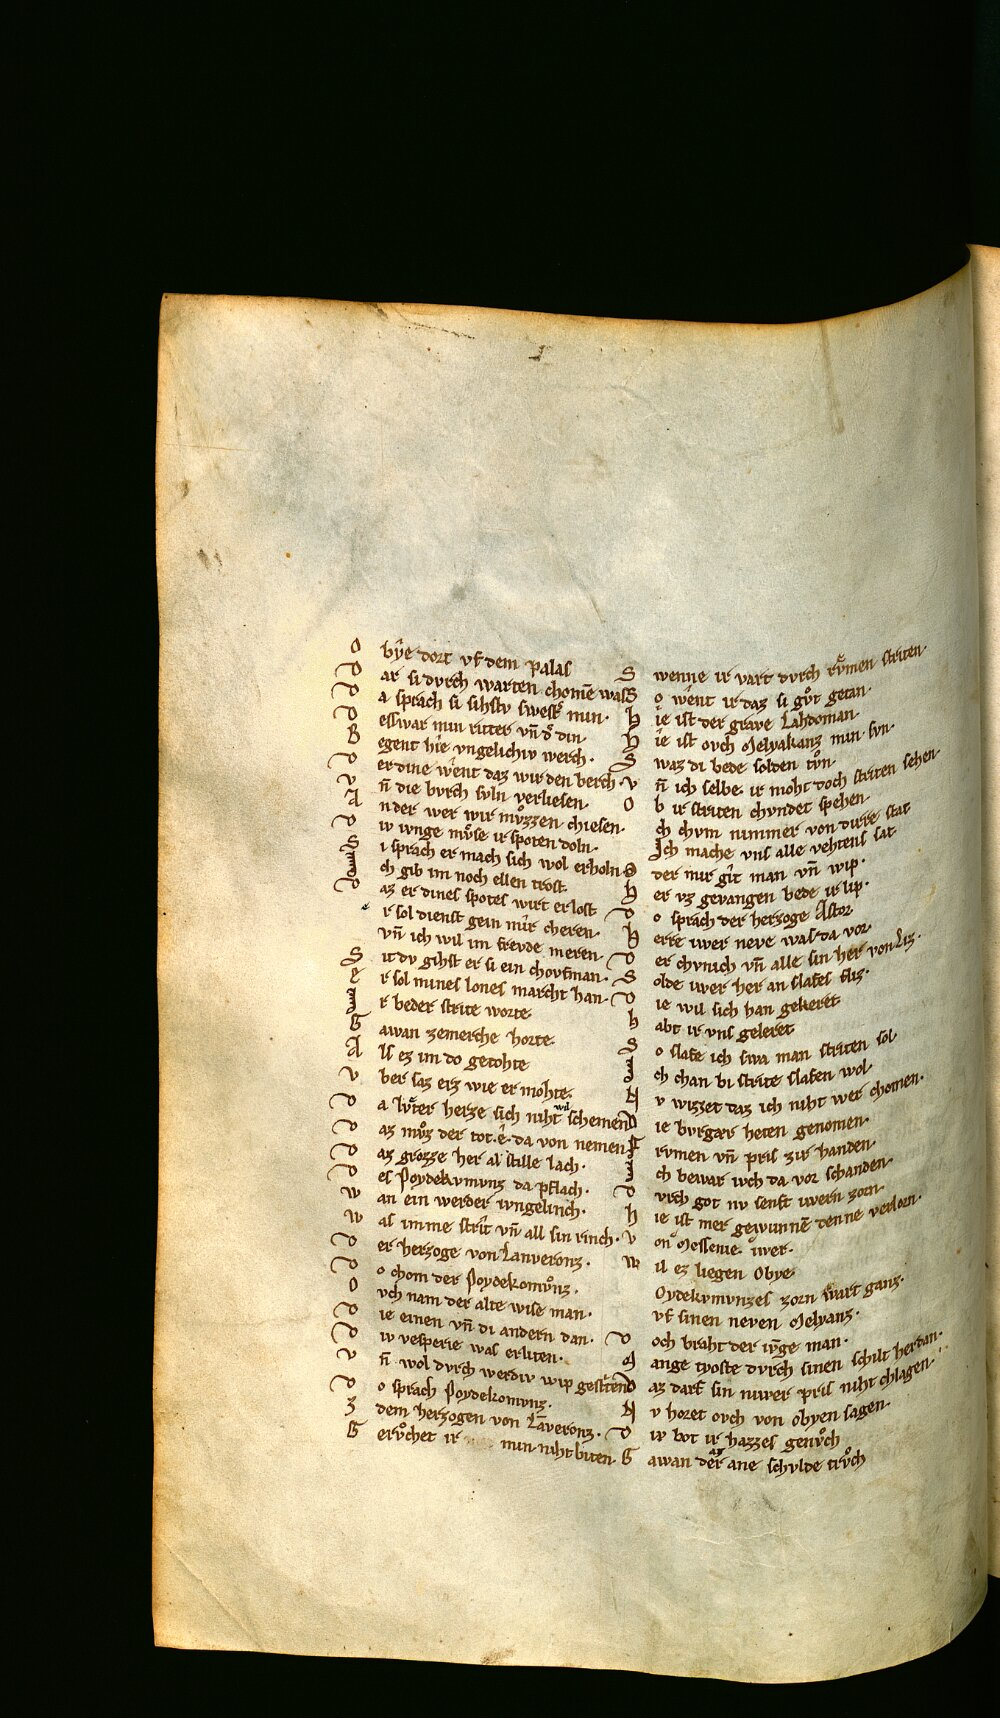 O bẏe dort vf dem palas
D ar si dvrch warten chomē was
D a sprach si sihstv swest' min.
D esswar min ritter vn̄ d' din.
B egent hie vngelichiv werch.
D er dine wênt daz wir den berch.
V n̄ die bvrch svln verliesen.
A nder wer wir mvͦzzen chiesen.
D iv ivnge mvͦse ir spoten doln.
S i sprach er mach sich wol erholn
I ch gib im noch ellen trost.
D az er dines spotes wirt erlost
E r sol dienst gein mir cheren.
vn̄ ich wil im frevde meren.
S it dv gihst er si ein chovfman.
E r sol mines lones marcht han.
I r beder strite worte
G awan zemerche horte.
A ls ez im do getohte
V ber saz erz wie er mohte.
D a lvter herze sich niht schemen
D az mvͦz der tot. ê. da von nemen
D az grozze her al stille lach.
D es Poydekvmvnz da pflach.
W an ein werder ivngelinch.
W as imme strît vn̄ all sin rinch.
D er herzoge von Lanveronz.
D o chom der Poydekomvͦnz.
O vch nam der alte wise man.
D ie einen vn̄ di andern dan.
D iv vesperie was erliten.
V n̄ wol dvrch werdiv wip gestriten
D o sprach Poydekomvnz.
Z dem herzogen von Lāveronz.
G ervͦchet ir min niht biten.
S wenne ir vart dvrch rvͦmen striten.
S o wênt ir daz si gvͦt getan.
H ie ist der grave Lahdoman.
H ie ist ovch Melyakanz min svn.
S waz di bede solden tvͦn.
V n̄ ich selbe. ir moht doch striten sehen.
O b ir striten chvndet spehen.
I ch chvm nimmer von dirre stat
Ich mache vns alle vehtens sat.
D der mir gît man vn̄ wip.
H er vz gevangen bede ir lip.
D o sprach der herzoge Astor
H erre iwer neve was da vor
D er chvnich vn̄ alle sin her von Liz.
S olde iwer her an slafes fliz.
D ie wil sich han gekeret
H abt ir vns geleret
S o slafe ich swa man striten sol.
I ch chan bi strite slafen wol.
N v wizzet daz ich niht wer chomen.
D ie bvrgær heten genomen.
F rvmen vn̄ pris zir handen.
I ch bewar ivch da vor schanden.
D vrch got nv senft iwern zorn.
H ie ist mer gewunnē denne verlorn.
V on Messenie. iwer.
W il ez liegen Obye.
Oydekvmvnzes zorn wart ganz.
vf sinen neven Melyanz.
D och braht der ivnge man.
M ange tyoste dvrch sinen schilt her dan.
D az darf sin niwer pris niht chlagen.
N v horet ovch von obyen sagen.
D iv bot ir hazzes genvͦch
G awan der ane schvlde trvͦch